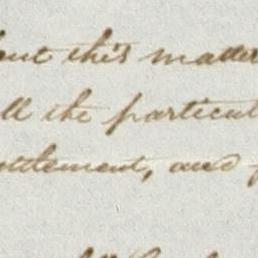 but this matter
all the particul
settlement, and